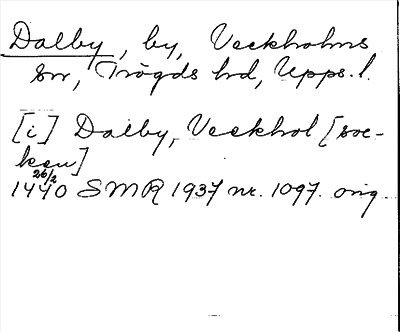 Dalby, by, Veckholms
sn, Trögds hd, Upps. l.
[i] Dalby, Veckhol [soc-
ken]
26/2
1440 SMR 1937 nr. 1097. orig.